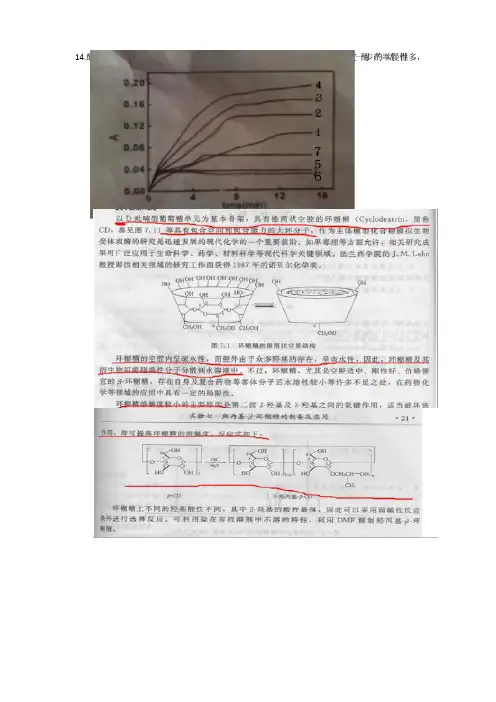 14.
0.20
0.16
0.12
0.08
0.04
0.00
A
4
3
2
1
7
5
6
0
4
8
12
16
time(min)
以D-吡喃型葡萄糖单元为基本骨架,具有锥筒状空腔的环糊精(Cyclodextrin,简称
CD,参见图7.1)等具有包合空间和包合能力的大环分子,作为主体模型化合物模拟生物
受体或酶的研究是迅速发展的现代化学的一个重要前沿。如果毒理等方面允许,相关研究成
果可广泛应用于生命科学、药学、材料科学等现代科学关键领域。法兰西学院的J.M.Lehn
教授即因相关领域的研究工作而获得1987年的诺贝尔化学奖。
图7.1 环糊精的锥筒状空腔结构
环糊精的空腔内呈疏水性,而腔外由于众多羟基的存在,呈亲水性,因此,环糊精及其
衍生物可将疏溶性分子分散到水溶液中。不过,环糊精,尤其是空腔适中、刚性好、价格便
宜的β-环糊精,存在自身及复合药物等客体分子后水溶性较小等许多不足之处,在药物化
学等领域的应用中具有一定的局限性。
环糊精溶解度较小的主要原因是第二面2-羟基及3-羟基之间的氢键作用,适当破坏该
实验七 羟丙基-β-环糊精的制备及应用
·21·
作用,即可提高环糊精的溶解度。反应式如下:
β-CD
2-羟丙基-β-CD
环糊精上不同的羟基酸性不同,其中2-羟基的酸性最强,因此可以采用弱碱性反应
条件进行选择反应。可利用除在有机溶剂中不溶的特性,利用DMF精制羟丙基-β-环
糊精。